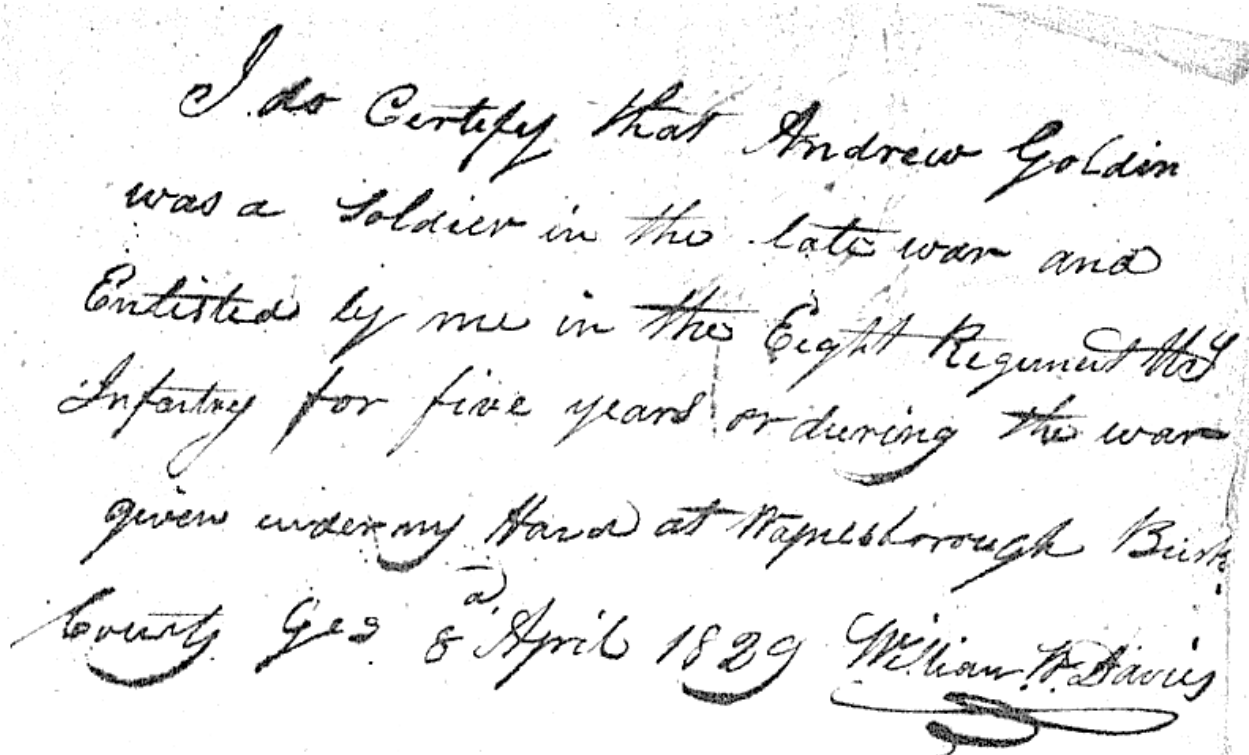 I do Certify that Andrew Goldin
was a Soldier in the late war and
Enlisted by me in the Eight Regiment
Infantry for five years or during the war
given under my Hand at Waynesborough Burk
County Geo 8 April 1829 William W. Davies